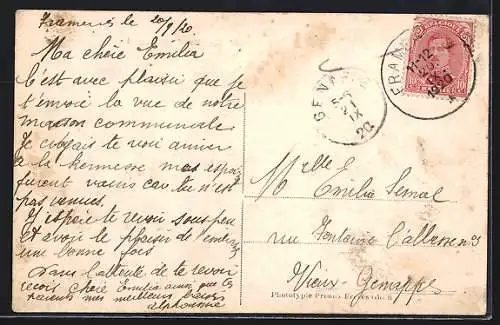 Frameries le 20/9/20
Ma chère Emilia
C'est avec plaisir que je
t'envoie la vue de notre
maison communale
Je croyais te voir arriver
à la kermesse mes espoirs
furent vains car tu n'est
pas venues.
J'espère te revoir sous peu
et avoir le plaisir de
une bonne fois
Dans l'attente de te revoir
reçois chère Emilia ainsi que tes
parents mes meilleurs baisers
Alphonsine
BELGIQUE
FRAM
11-12
20
IX
1920
21
IX
20
Melle
Emilia
rue Fontaine
Vieux-Genappes
Phototypie